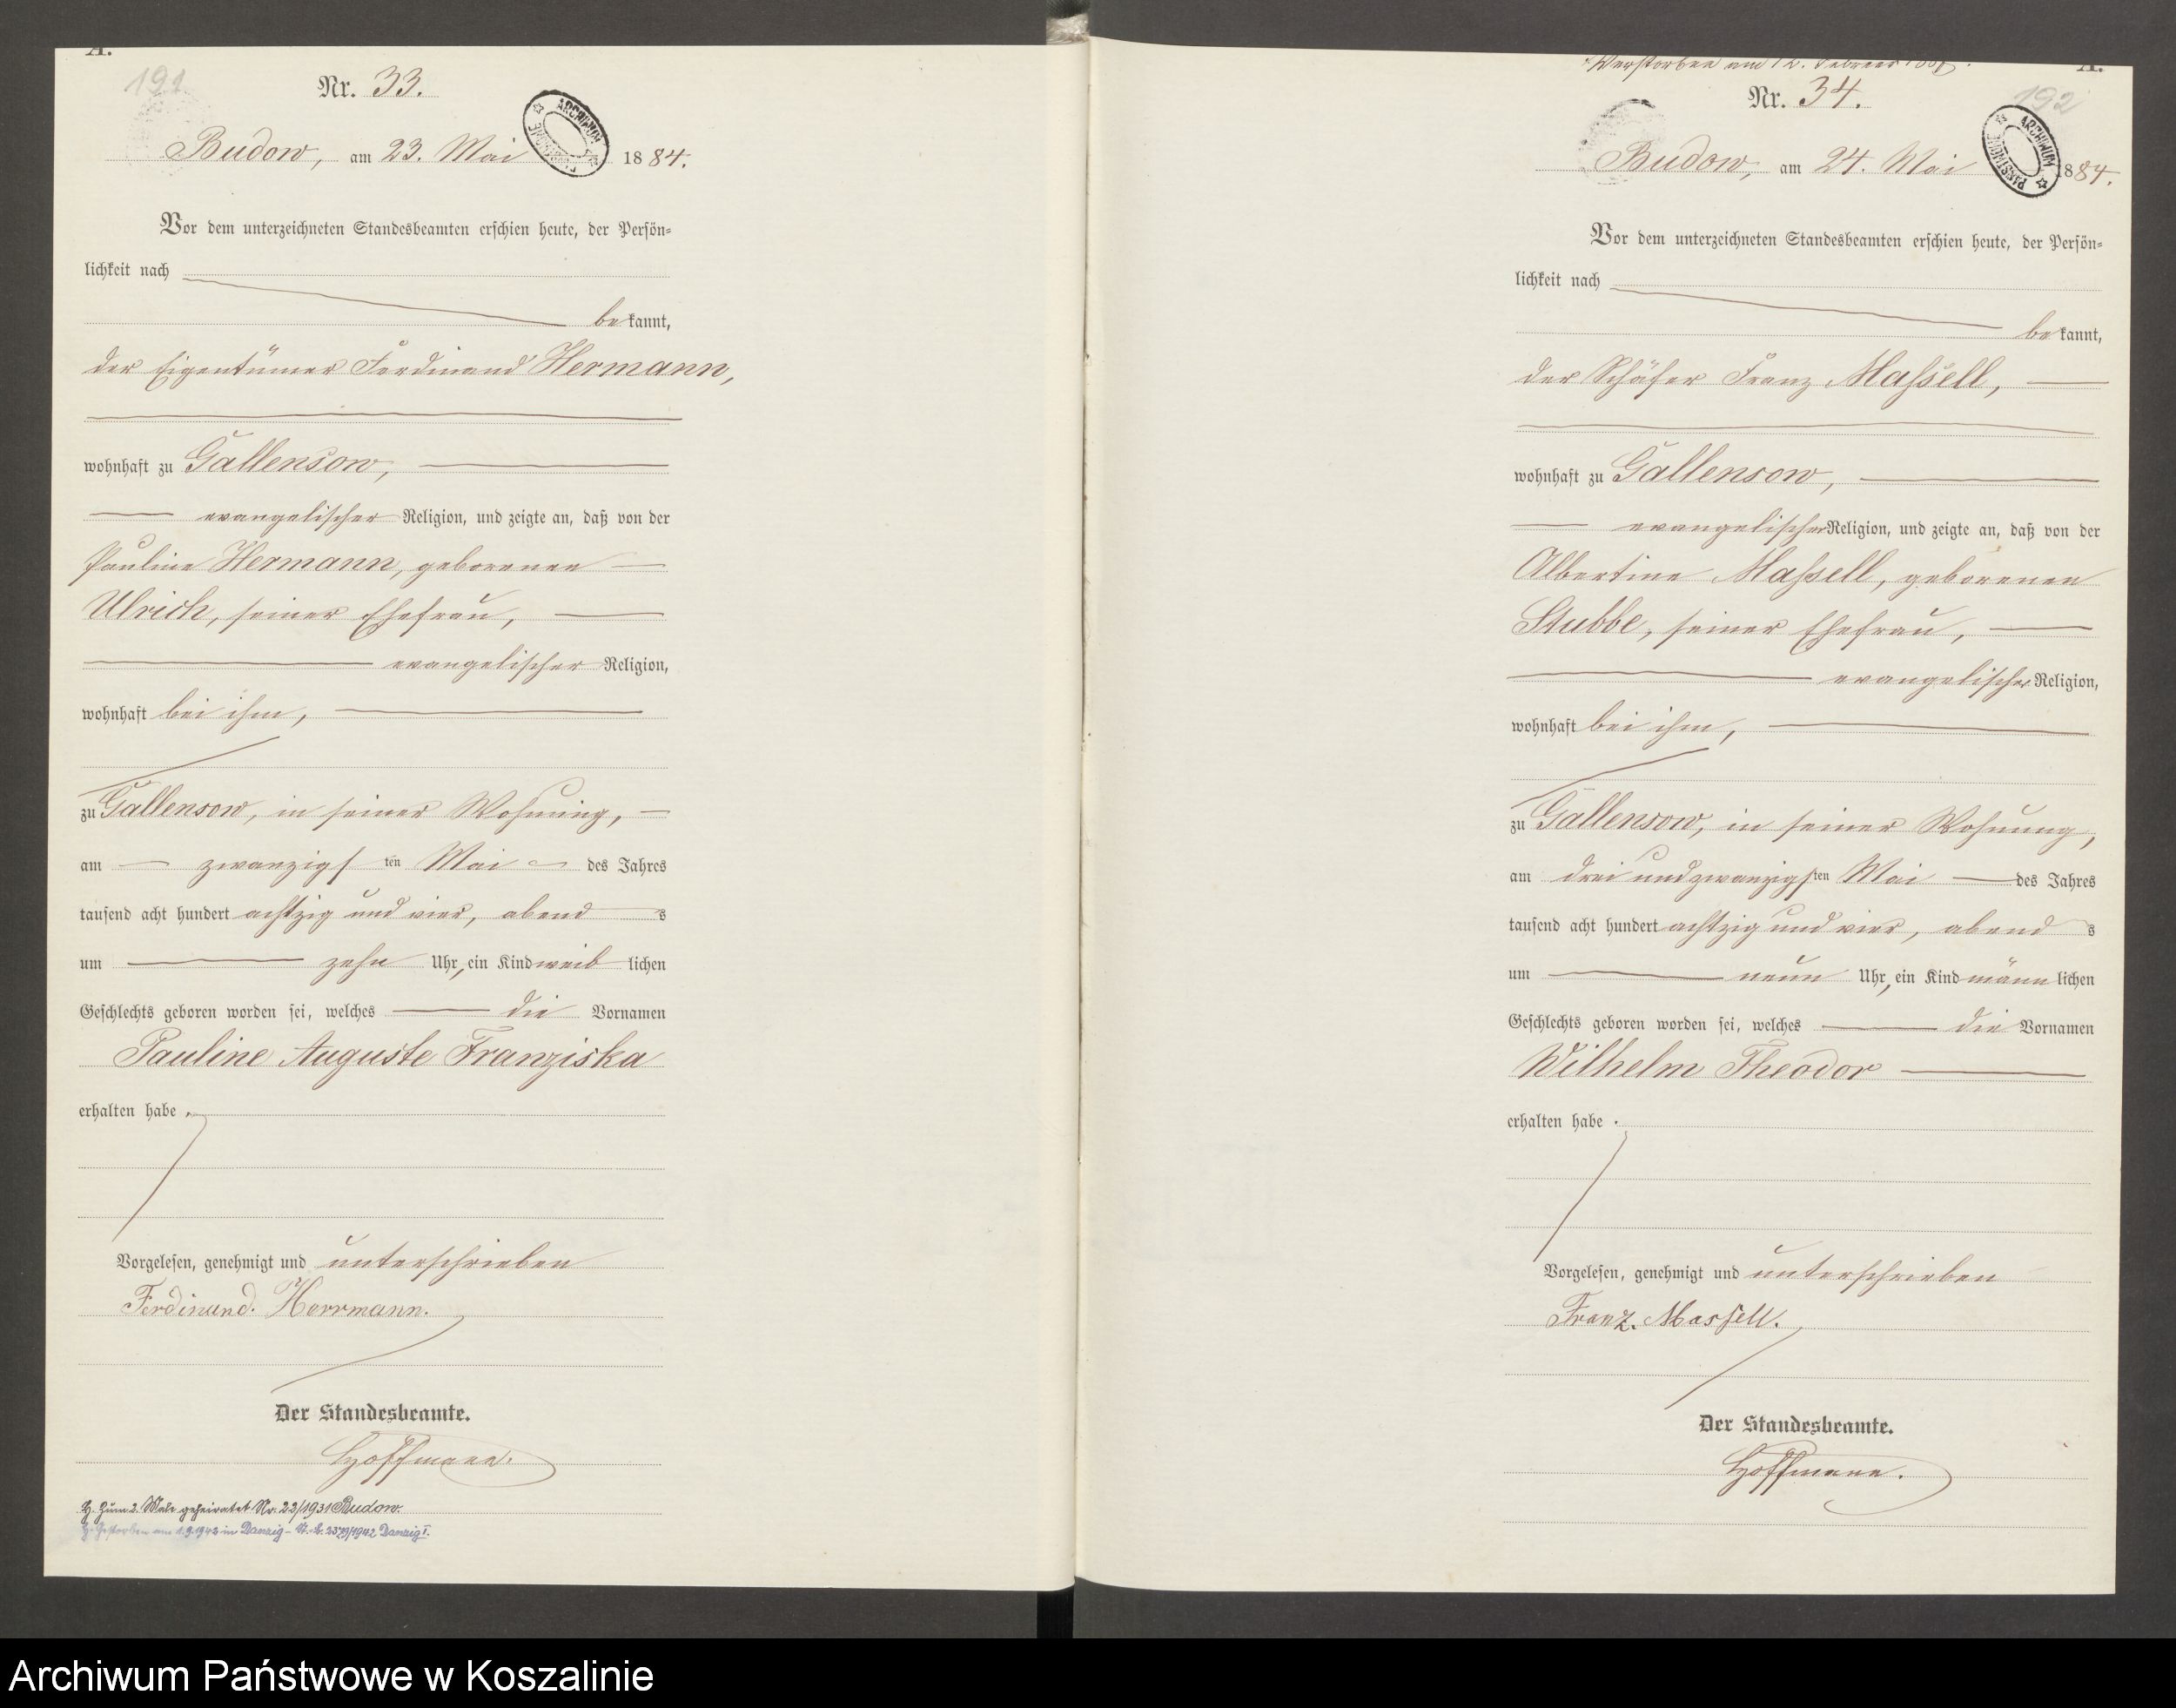 A.
191
Nr. 33.
Budow, am 23. Mai 1884.
ARCHIWUM
Vor dem unterzeichneten Standesbeamten erschien heute, der Persön-
lichkeit nach
bekannt,
der Eigentümer Ferdinand Hermann,
wohnhaft zu Gallensow,
evangelischer Religion, und zeigte an, daß von der
Pauline Hermann, geborenen
Ulrich, seiner Ehefrau,
evangelischer Religion,
wohnhaft bei ihm,
zu Gallensow, in seiner Wohnung,
am zwanzigsten Mai des Jahres
tausend acht hundert achtzig und vier, abends
um zehn Uhr, ein Kind weiblichen
Geschlechts geboren worden sei, welches die Vornamen
Pauline Auguste Franziska
erhalten habe.
Vorgelesen, genehmigt und unterschrieben
Ferdinand. Herrmann.
Der Standesbeamte.
Hoffmann.
H. Zum 2. Male geheiratet Nr. 22/1931 Budow.
H. Gestorben am 1.9.1942 in Danzig - St.A. 2379/1942 Danzig I.
Verstorben am 12. Februar
A.
192
Nr. 34.
Budow, am 24. Mai 1884.
ARCHIWUM PAŃSTWOWE
Vor dem unterzeichneten Standesbeamten erschien heute, der Persön-
lichkeit nach
bekannt,
der Schäfer Franz Maßell,
wohnhaft zu Gallensow,
evangelischer Religion, und zeigte an, daß von der
Albertine Maßell, geborenen
Stubbe, seiner Ehefrau,
evangelischer Religion,
wohnhaft bei ihm,
zu Gallensow, in seiner Wohnung,
am drei und zwanzigsten Mai des Jahres
tausend acht hundert achtzig und vier, abends
um neun Uhr, ein Kind männlichen
Geschlechts geboren worden sei, welches die Vornamen
Wilhelm Theodor
erhalten habe.
Vorgelesen, genehmigt und unterschrieben
Franz. Massell.
Der Standesbeamte.
Hoffmann.
Archiwum Państwowe w Koszalinie